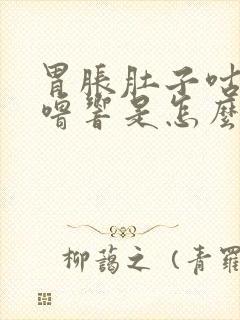 胃脹肚子咕
嚕響是怎麼
柳藹之（青羅